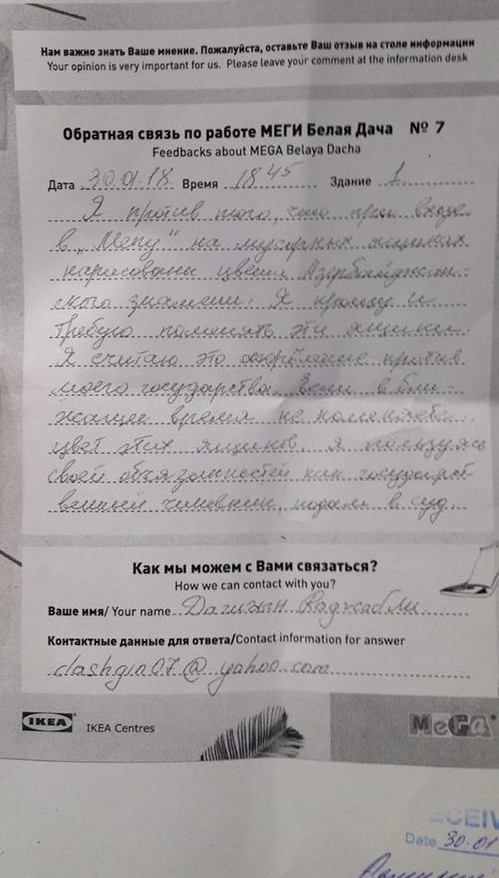 Нам важно знать Ваше мнение. Пожалуйста, оставьте Ваш отзыв на столе информации
Your opinion is very important for us. Please leave your comment at the information desk
Обратная связь по работе МЕГИ Белая Дача № 7
Feedbacks about MEGA Belaya Dacha
Дата 30.01.18 Время 18 45 Здание 1
Я против того, что при входе
в "Мегу" на мусорных ящиках
нарисованы цвета Азербайджан-
ского знамени. Я прошу и
требую поменять эти ящики.
Я считаю это оскорбление против
моего государства. Если в бли-
жащее время не поменяете
цвет этих ящиков, я пользуясь
своей обязанностей как государст-
венный чиновник, подам в суд
Как мы можем с Вами связаться?
How we can contact with you?
Ваше имя/ Your name Дашгин Раджабли
Контактные данные для ответа/Contact information for answer
dashgin07@yahoo.com
IKEA IKEA Centres MEGA
Date 30.01